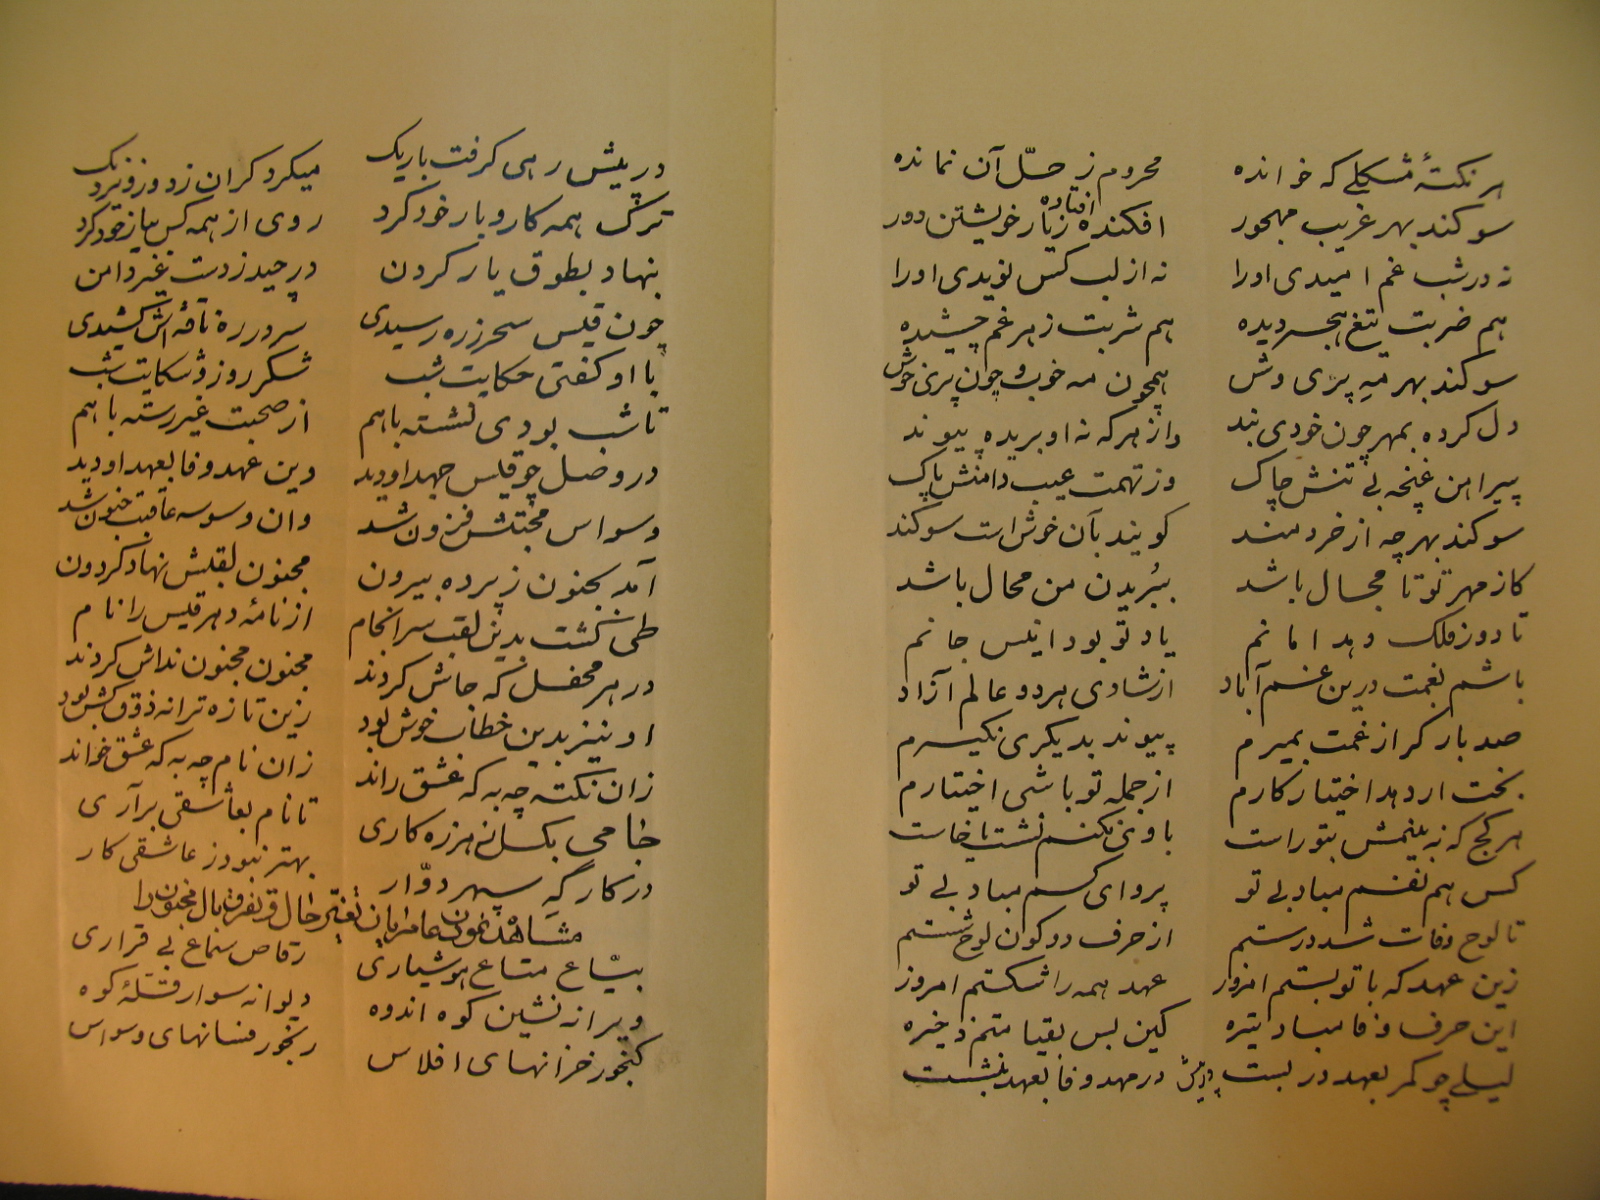 هر نکتهٔ مشکلے که خوانده محروم ز حلّ آن نمانده
سوکند بهر غریب مهجور افکنده زیار خویشتن دور
افتاده
نه در شب غم امیدی اورا نه از لب کس نویدی اورا
هم ضربت تیغ هجر دیده هم شربت زهر غم چشیده
سوکند بهر مهِ پری وش همچون مه خوب و چون پری خوش
دل کرده بمهر چون خودی بند واز هر که نه او بریده پیوند
پیراهن غنچه بے تنش چاک وز تهمت عیب دامنش پاک
سوکند بهر چه از خردمند کویند بآن خوش است سوکند
کاز مهر تو تا مجال باشد ببُریدن من محال باشد
تا دور فلک دهد امانم یاد تو بود انیس جانم
باشم بغمت درین غم آباد از شادی هر دو عالم آزاد
صد بار کر از غمت بمیرم پیوند بدیکری نکیرم
بخت ار دهد اختیار کارم از جمله تو باشی اختیارم
هر کج که نه بینمش بتو راست با وی نکنم نشست یا خاست
کس هم نفسم مباد بے تو پروای کسم مباد بے تو
تا لوح وفات شد درستم از حرف دو کون لوح شستم
زین عهد که با تو بستم امروز عهد همه را شکستم امروز
این حرف وفا مباد تیره کین بس بقیامتم ذخیره
لیلے چو کمر بعهد در بست در مهد وفا بعهد بنشست
در پیش رهی کرفت باریک میکرد کران ز دور و نزدیک
ترک همه کار و بار خود کرد روی از همه کس بیار خود کرد
بنهاد بطوق یار کردن در چید ز دست غیر دامن
چون قیس سحر ز ره رسیدی سر در ره ناقه اش کشیدی
با او کفتی حکایت شب شکر روز و شکایت شب
تا شب بودی نشسته با هم از صحبت غیر رسته با هم
در وصل چو قیس جهد او دید وین عهد و فا بعهد او دید
وسواس محبتش فزون شد وان وسوسه عاقبت جنون شد
آمد بجنون ز پرده بیرون مجنون لقبش نهاد کردون
طی کشت بدین لقب سرانجام از نامهٔ دهر قیس را نام
در هر محفل که جاش کردند مجنون مجنون نداش کردند
او نیز بدین خطاب خوش بود زین تازه ترانه ذوق کش بود
زان نکته چه به که عشق راند زان نام چه به که عشق خواند
جامی بکسل ز هرزه کاری تا نام بعاشقی برآری
در کارکهِ سپهر دوّار بهتر نبود ز عاشقی کار
مشاهده نمودن عامریان تغیّر حال و تفرق بال مجنون را
بیّاع متاع هوشیاری رقاص سماع بے قراری
ویرانه نشین کوه اندوه دیوانه سوار قلهٔ کوه
کنجور خزانهای افلاس رنجور فسانهای وسواس